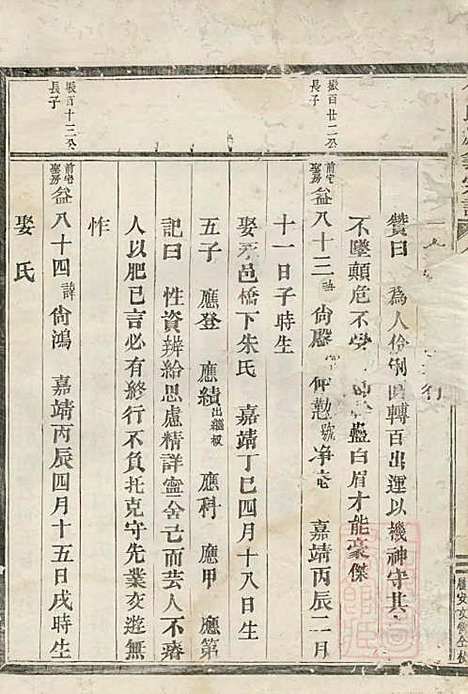 贊曰 為人伶俐 轉百出運以機神守其
不墜顛危不 藍白眉才能豪傑
振百廿二公
長子
前宅
聖房
益八十三 諱尚 仲勳號淨 嘉靖丙辰二月
十一日子時生
娶 邑橋下朱氏 嘉靖丁巳四月十八日生
五子 應登 應績出繼 應科 應甲 應第
記曰 性資辨給思慮精詳寧舍己而芸人不瘠
人以肥己言必有終行不負托克守先業交遊無
忤
振百十三公
長子
前宅
聖房
益八十四諱尚鴻 嘉靖丙辰四月十五日戌時生
娶氏